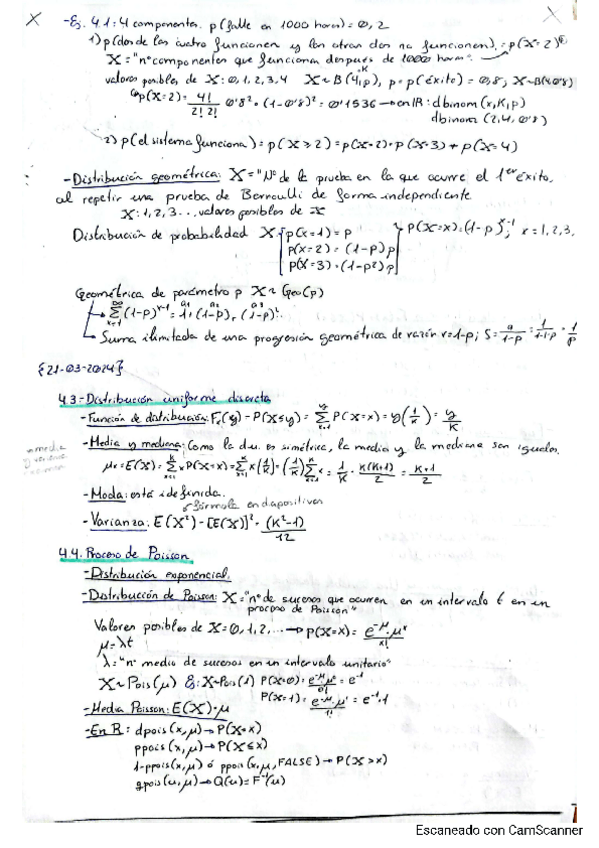 -Ej. 4.1: 4 componentes. p(falle en 1000 horas) = 0,2
1) p(dos de los cuatro funcionen y los otros dos no funcionen) = p(X=2)
X = "nº componentes que funcionan después de 1000 horas"
valores posibles de X: 0,1,2,3,4 X~B(4,p), p=p(éxito)=0,8; X~B(4,0'8)
p(X=2) = 4!/2!2! 0'8² · (1-0'8)² = 0'1536 → en R: dbinom(x,K,p)
dbinom(2,4,0'8)
2) p(el sistema funciona) = p(X≥2) = p(X=2)+p(X=3)+p(X=4)
-Distribución geométrica: X = "Nº de la prueba en la que ocurre el 1er éxito,
al repetir una prueba de Bernoulli de forma independiente
X: 1,2,3..., valores posibles de x
Distribución de probabilidad X p(X=1)=p p(X=x)=(1-p)^x-1; x=1,2,3,
p(X=2)=(1-p)p
p(X=3)=(1-p²)p
Geométrica de parámetro p X~Geo(p)
∑(1-p)^x-1 = 1+(1-p)+(1-p)²...
Suma ilimitada de una progresión geométrica de razón r=1-p; S=
{21-03-2024}
4.3.-Distribución uniforme discreta
-Función de distribución: P(X≤y) = ∑ P(X=x) = y(1/K) = y/K
-Media y mediana: Como la d.u. es simétrica, la media y la mediana son iguales.
μx=E(X)=∑x P(X=x)=∑x(1/K)=(1/K)∑x=1/K · K(K+1)/2 = K+1/2
-Moda: está indefinida.
fórmula en diapositivas
-Varianza: E(X²)-[E(X)]² = (K²-1)/12
4.4. Proceso de Poisson
-Distribución exponencial.
-Distribución de Poisson: X="nº de sucesos que ocurren en un intervalo t en un
proceso de Poisson"
Valores posibles de X=0,1,2,... → p(X=x) = e^-μ · μ^x/x!
μ=λt
λ="nº medio de sucesos en un intervalo unitario"
X~Pois(μ) Ej: X~Pois(1) P(X=0)= e^-μ · μ⁰/0! = e^-1
P(X=1)= e^-μ · μ¹/1! = e^-1 · 1
-Media Poisson: E(X)=μ
-En R: dpois(x,μ)→P(X=x)
ppois(x,μ)→P(X≤x)
1-ppois(x,μ) ó ppois(x,μ,FALSE)→P(X>x)
qpois(u,μ)→Q(u)=F^-1(u)
Escaneado con CamScanner